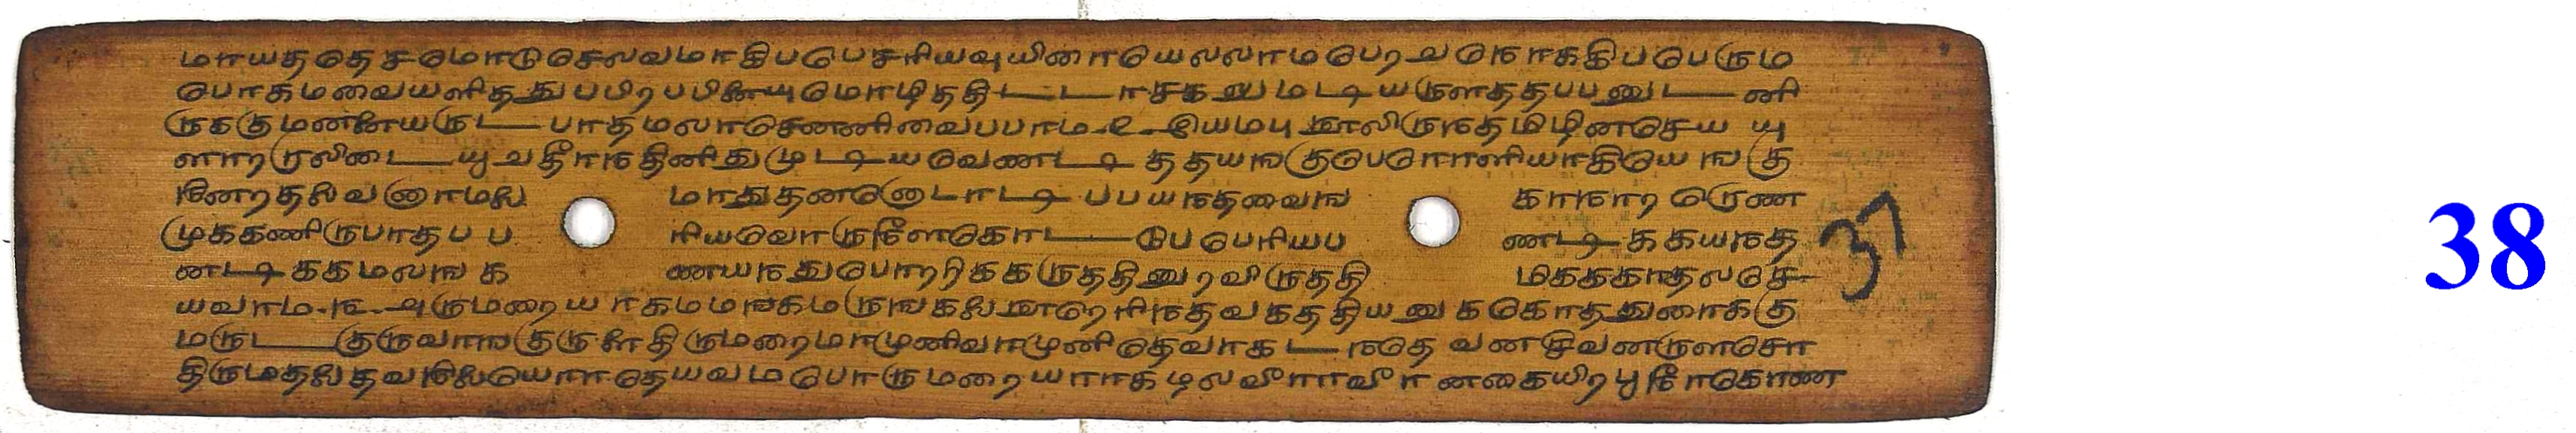 மாயதததெசமொடுசெலவமாகிபபெசரியவுயிரையெலலாமபெறவநொககிபபெரும
பொகமவையளிதததுபபிறபபினையுமொழிததிட்டாசகனுமடியருளததபபனுடனி
ருககுமணனையருடபாதமலாசெனனிவைபபாம.உ.இயமபுநூலிருநதமிழினசெய யு
ளாறருலிடையுவதீாநதினிதுமுடியவெணடி ததயஙகுபொளியாகியெஙகு
னறதலைவனாமலை மாதுதனனொடாடி பபயநதவைங காநாற ரெண
முககணிருபாதப ப ரியவொருளைகொடடுபபெரியப ணடி ககயநத
னடி ககமலஙக ணயநதுபொறறிககருததினுறவிருததி மிகககாதலசெ
யவாம.ங.அருமறையாகமமஙகமருஙகலைநூறெரிநதவகததியனுககொததுரைககு
மருடகுருவாஙகுருளைதிருமறைமாமுனிவாமுனிதெவாகடநதெ வனசிவனருளசொ
திருமதலைதவநிலையொாதெயவமபொருமறையாாகழலவீாாவீா னகையிறபுநீாகொண
37
38